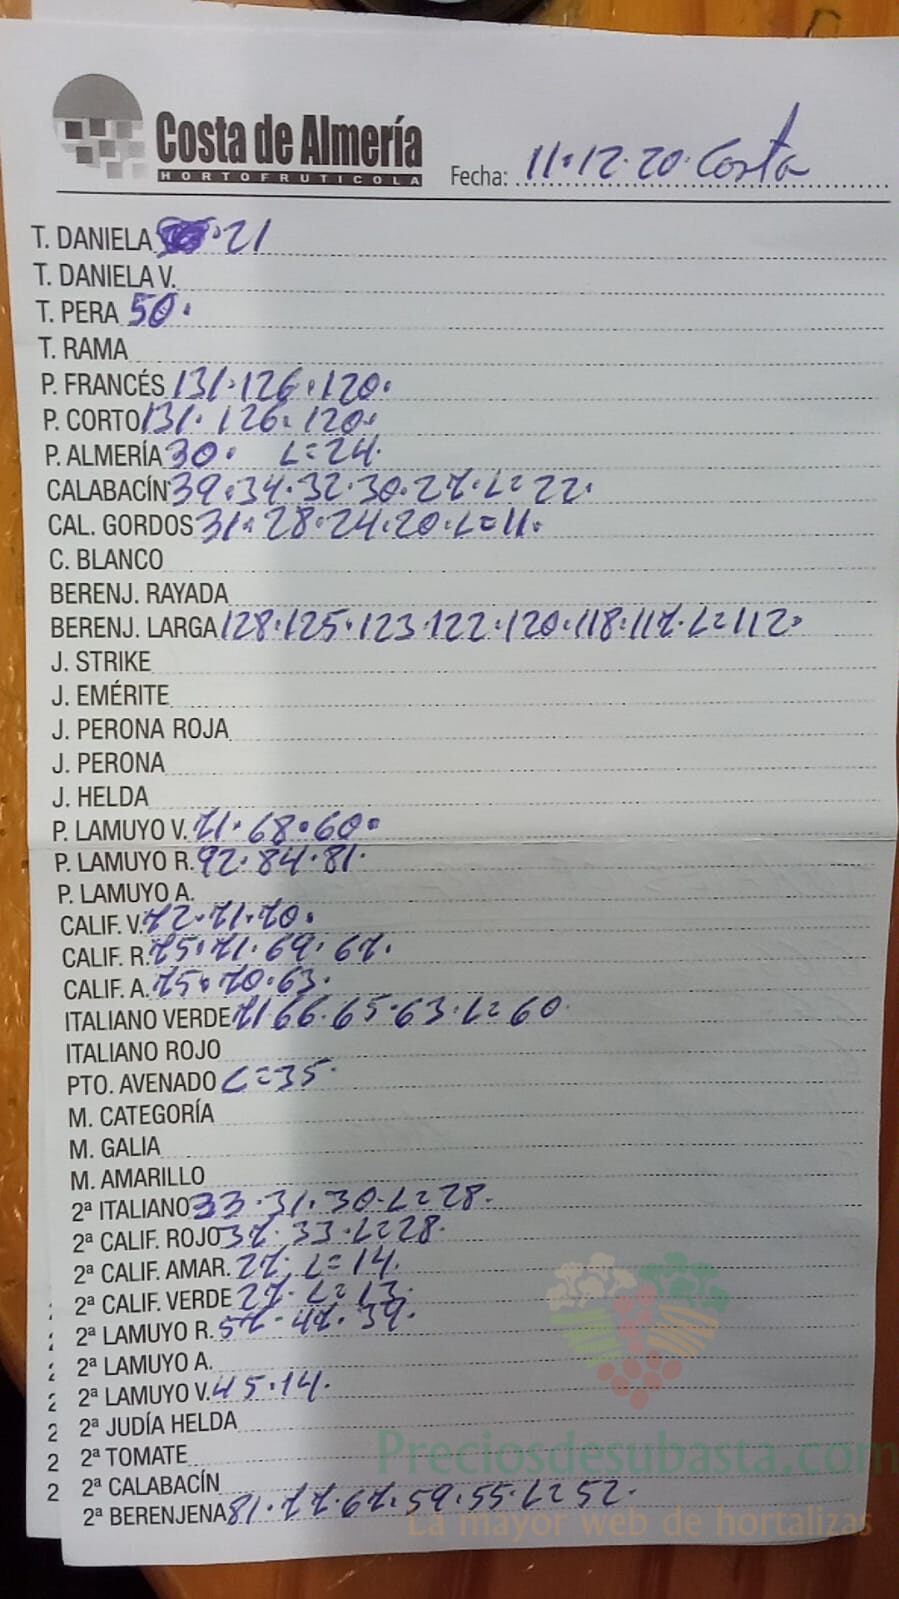 Costa de Almería
HORTOFRUTICOLA
Fecha: 11·12·20· Costa
T. DANIELA ·21
T. DANIELA V.
T. PERA 50·
T. RAMA
P. FRANCÉS 131·126·120·
P. CORTO 131·126·120·
P. ALMERÍA 30· L=24·
CALABACÍN 39·34·32·30·27·L=22·
CAL. GORDOS 31·28·24·20·L=11·
C. BLANCO
BERENJ. RAYADA
BERENJ. LARGA 128·125·123·122·120·118·117·L=112·
J. STRIKE
J. EMÉRITE
J. PERONA ROJA
J. PERONA
J. HELDA
P. LAMUYO V. 71·68·60·
P. LAMUYO R. 92·84·81·
P. LAMUYO A.
CALIF. V. 72·71·70·
CALIF. R. 75·71·69·67·
CALIF. A. 75·70·63·
ITALIANO VERDE 71 66·65·63·L=60·
ITALIANO ROJO
PTO. AVENADO L=35·
M. CATEGORÍA
M. GALIA
M. AMARILLO
2ª ITALIANO 33·31·30·L=28·
2ª CALIF. ROJO 37·33·L=28·
2ª CALIF. AMAR. 27·L=14·
2ª CALIF. VERDE 27·L=13·
2ª LAMUYO R. 57·47·39·
2ª LAMUYO A.
2ª LAMUYO V. 45·14·
2ª JUDÍA HELDA
2ª TOMATE
2ª CALABACÍN
2ª BERENJENA 81·77·67·59·55·L=52·
Preciosdesubasta.com
La mayor web de hortalizas